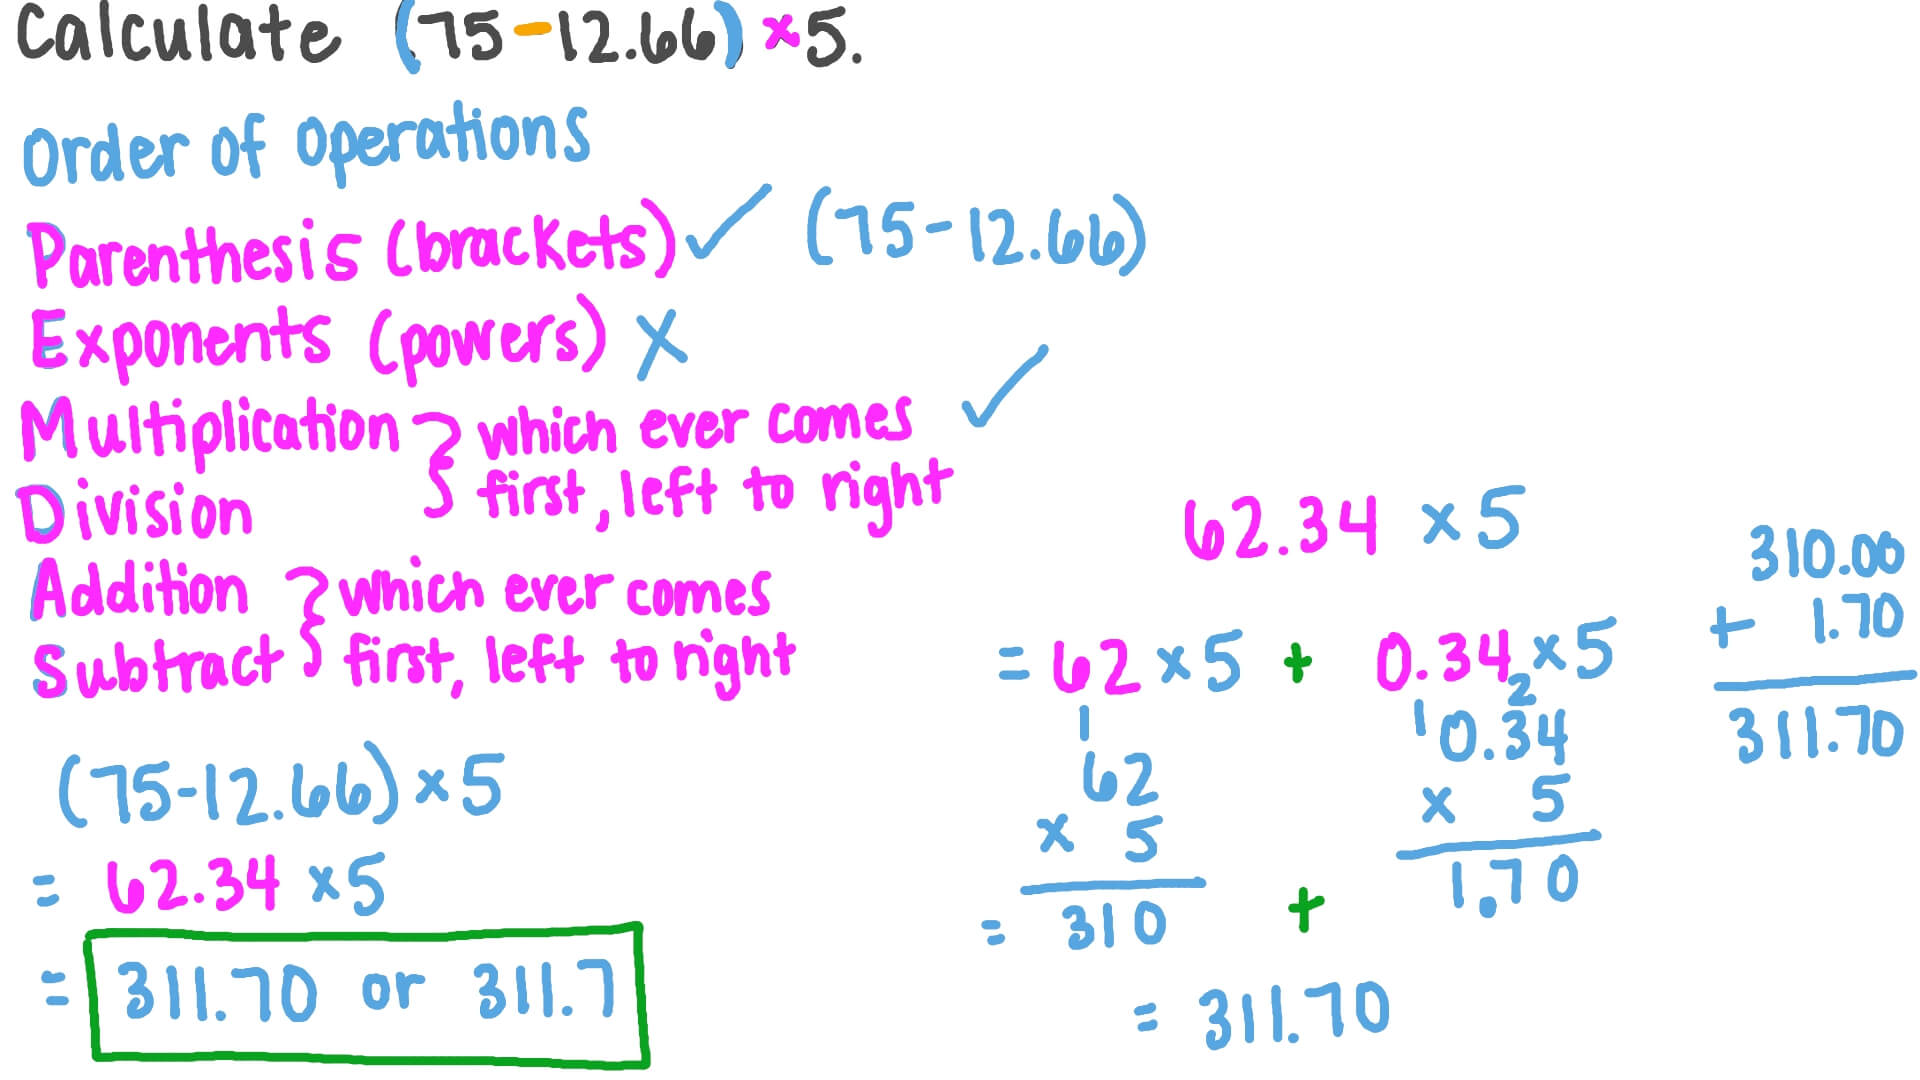 Calculate (75-12.66) ×5.
Order of operations
Parenthesis (brackets) ✓ (75-12.66)
Exponents (powers) X
Multiplication } which ever comes ✓
Division first, left to right
Addition } which ever comes
Subtract first, left to right
(75-12.66) ×5
= 62.34 ×5
= 311.70 or 311.7
62.34 ×5
= 62 ×5 + 0.34 ×5
1
62
× 5
= 310
+
2
1 0.34
× 5
1.70
= 311.70
310.00
+ 1.70
311.70